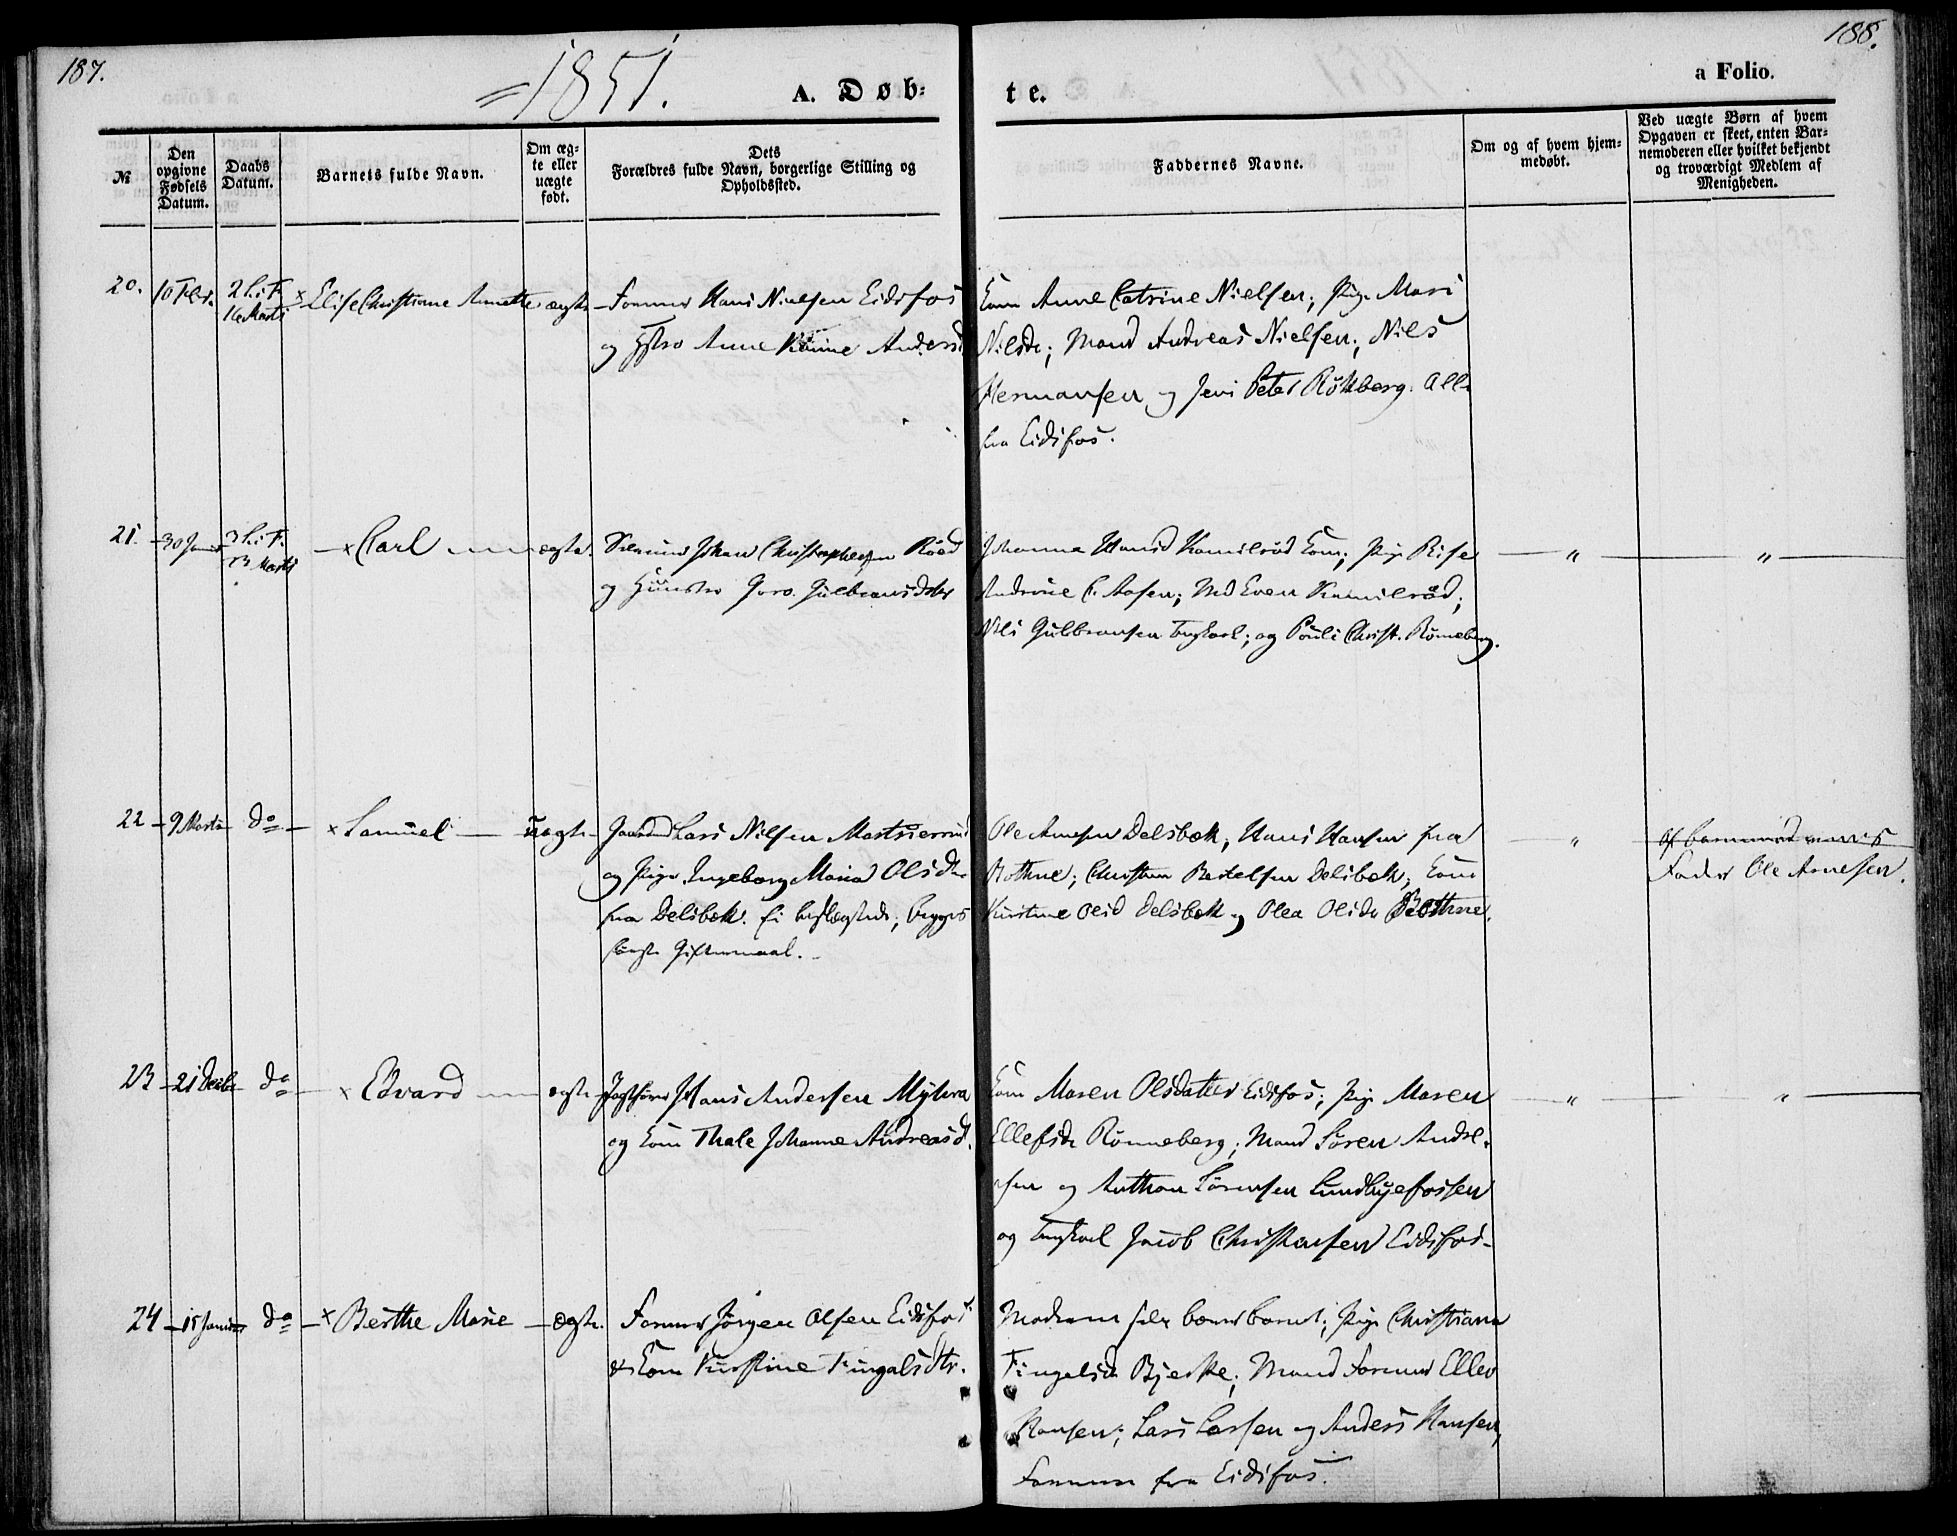 187.
1851.
A. Døb-
te.
188.
a Folio.
№
Den opgivne Fødsels Datum.
Daabs Datum.
Barnets fulde Navn.
Om ægte eller uægte født.
Dets Forældres fulde Navn, borgerlige Stilling og Opholdssted.
Faddernes Navne.
Om og af hvem hjemmedøbt.
Ved uægte Børn af hvem Opgaven er skeet, enten Barnemoderen eller hvilket bekjendt og troværdigt Medlem af Menigheden.
20. 10 Febr. 2 S. i F. 16 Marts × Elise Christiane Annette ægte
Former Hans Nielsen Eidsfos
og Hstro Anne Karine Andersd
Kone Anne Catrine Nielsen; Pige Mari
Nilsdr; Mand Andreas Nielsen; Nils
Hermansen og Jens Peter Röhberg. Alle
fra Eidsfos.
21. 30 Januar 3 S. i F. 23 Marts × Carl ægte.
Johan Christophersen Röed
og Huustro Goro Gulbransdtr
Johanne Hansd Kamilröd Kone; Pige
Andrine C. Aasen; Md Even Kamilröd;
Nils Gulbransen Ungkarl; og Pouli Christ. Rönneberg.
" "
22 9 Marts do × Samuel uægte
Gaardmd Lars Nilsen
og Pige Ingeborg Maria Olsdr
fra Delsbek. Ei beslægtede; begges
første Giftermaal.
Ole Arnesen Delsbek; Hans Hansen fra
Bothne; Christen Bertelsen Delsbek; Kone
Kirstine Olsd Delsbek og Olea Olsdr Bothne.
"
Af barnemoderens
Fader Ole Arnesen.
23 21 Decbr do × Edvard ægte
Hans Andersen Myhra
og Kone Thale Johanne Andreasd.
Kone Maren Olsdatter Eidsfos; Pige Maren
Ellefsdr Rönneberg; Mand Sören Andre-
sen og Anthon Sörensen Lundbyefossen
og Ungkarl Jacob Christensen Eidsfos.
" "
24 15 Januar do × Berthe Marie ægte.
Former Jörgen Olsen Eidsfos
& Kone Kirstine Fingalsdtr.
Moderen selv bar barnet; Pige Christiane
Fingalsd Bjerke; Mand Former Ellev
Hansen; Lars Larsen og Anders Hansen,
Formere fra Eidsfos.